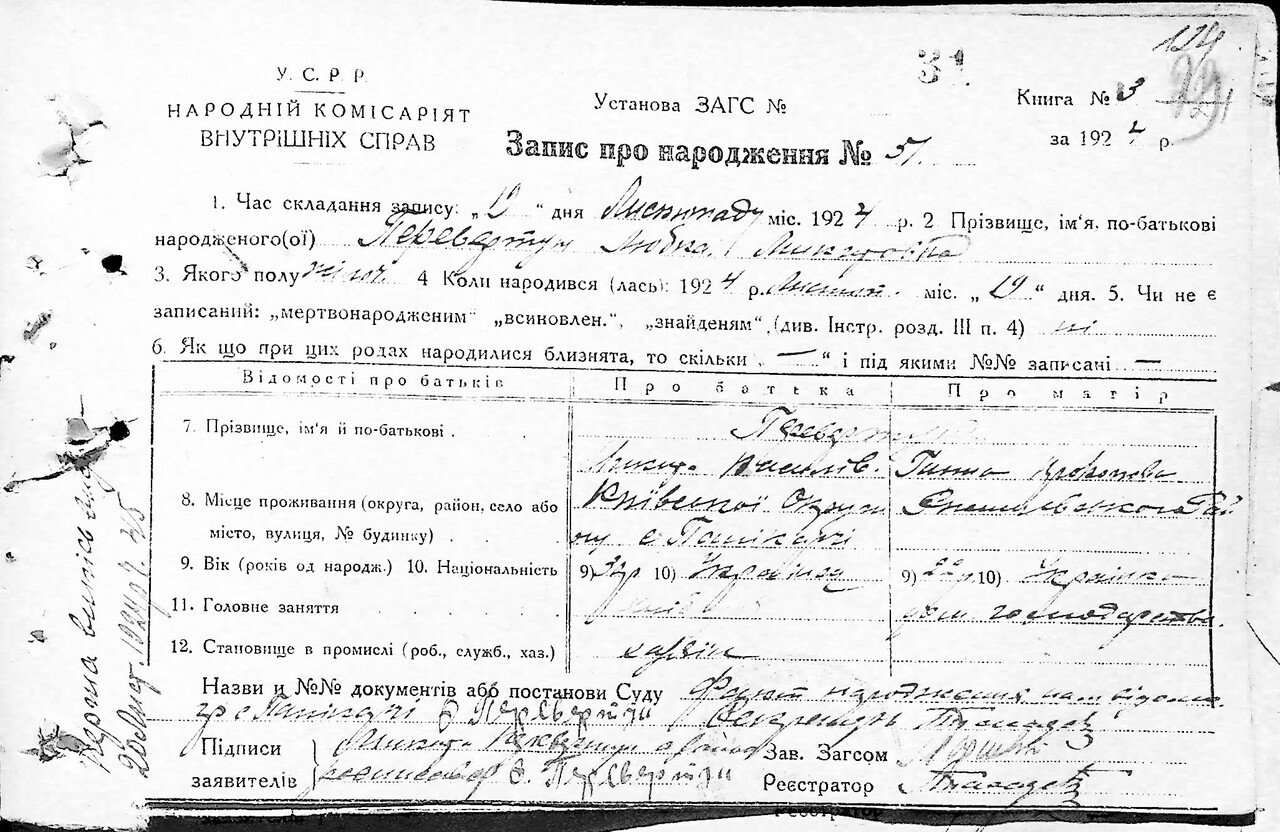 31
124
У. С. Р. Р.
НАРОДНІЙ КОМІСАРІЯТ
ВНУТРІШНІХ СПРАВ
Установа ЗАГС №
Книга № 3
за 1924 р.
Запис про народження № 51.
1. Час складання запису: „19“ дня Листопаду міс. 1924 р. 2 Прізвище, ім‘я, по-батькові
народженого(ої) Перевертун Любка Микитовна
3. Якого полу жіноч. 4 Коли народився (лась): 1924 р. Листоп. міс. „19“ дня. 5. Чи не є
записаний: „мертвонародженим“ „всиновлен.“, „знайденям“, (див. Інстр. розд. III п. 4) ні
6. Як що при цих родах народилися близнята, то скільки „—“ і під якими №№ записані —
Відомості про батьків Про батька Про матір
7. Прізвище, ім‘я й по-батькові . Перевертуни
Микита Василів. Ганна Прокопова
8. Місце проживання (округа, район, село або Київської Округи
місто, вулиця, № будинку) . . с Папікарчі
9. Вік (років од народж.) 10. Національність 9) 32р 10) Українец 9) 22р. 10) Українка
11. Головне заняття . . . . . дом господарства.
12. Становище в промислі (роб., служб., хаз.) хазяїн
Назви и №№ документів або постанови Суду Факт народження відомо
гр с Перевертун Секретарь
Підписи Микита
заявителів Перевертун
Зав. Загсом
Реєстратор
Перша випись
20 Лист. 1924 р. № 45